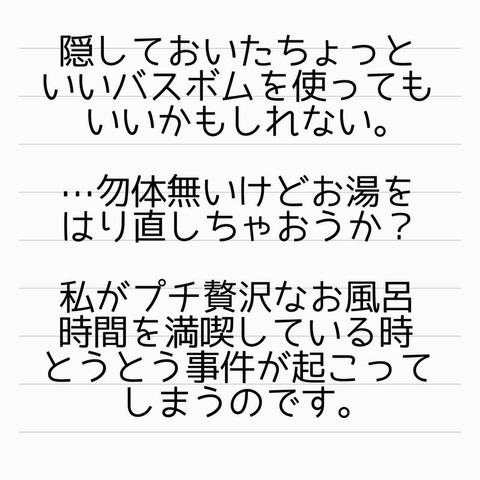 隠しておいたちょっと
いいバスボムを使っても
いいかもしれない。
…勿体無いけどお湯を
はり直しちゃおうか？
私がプチ贅沢なお風呂
時間を満喫している時
とうとう事件が起こって
しまうのです。